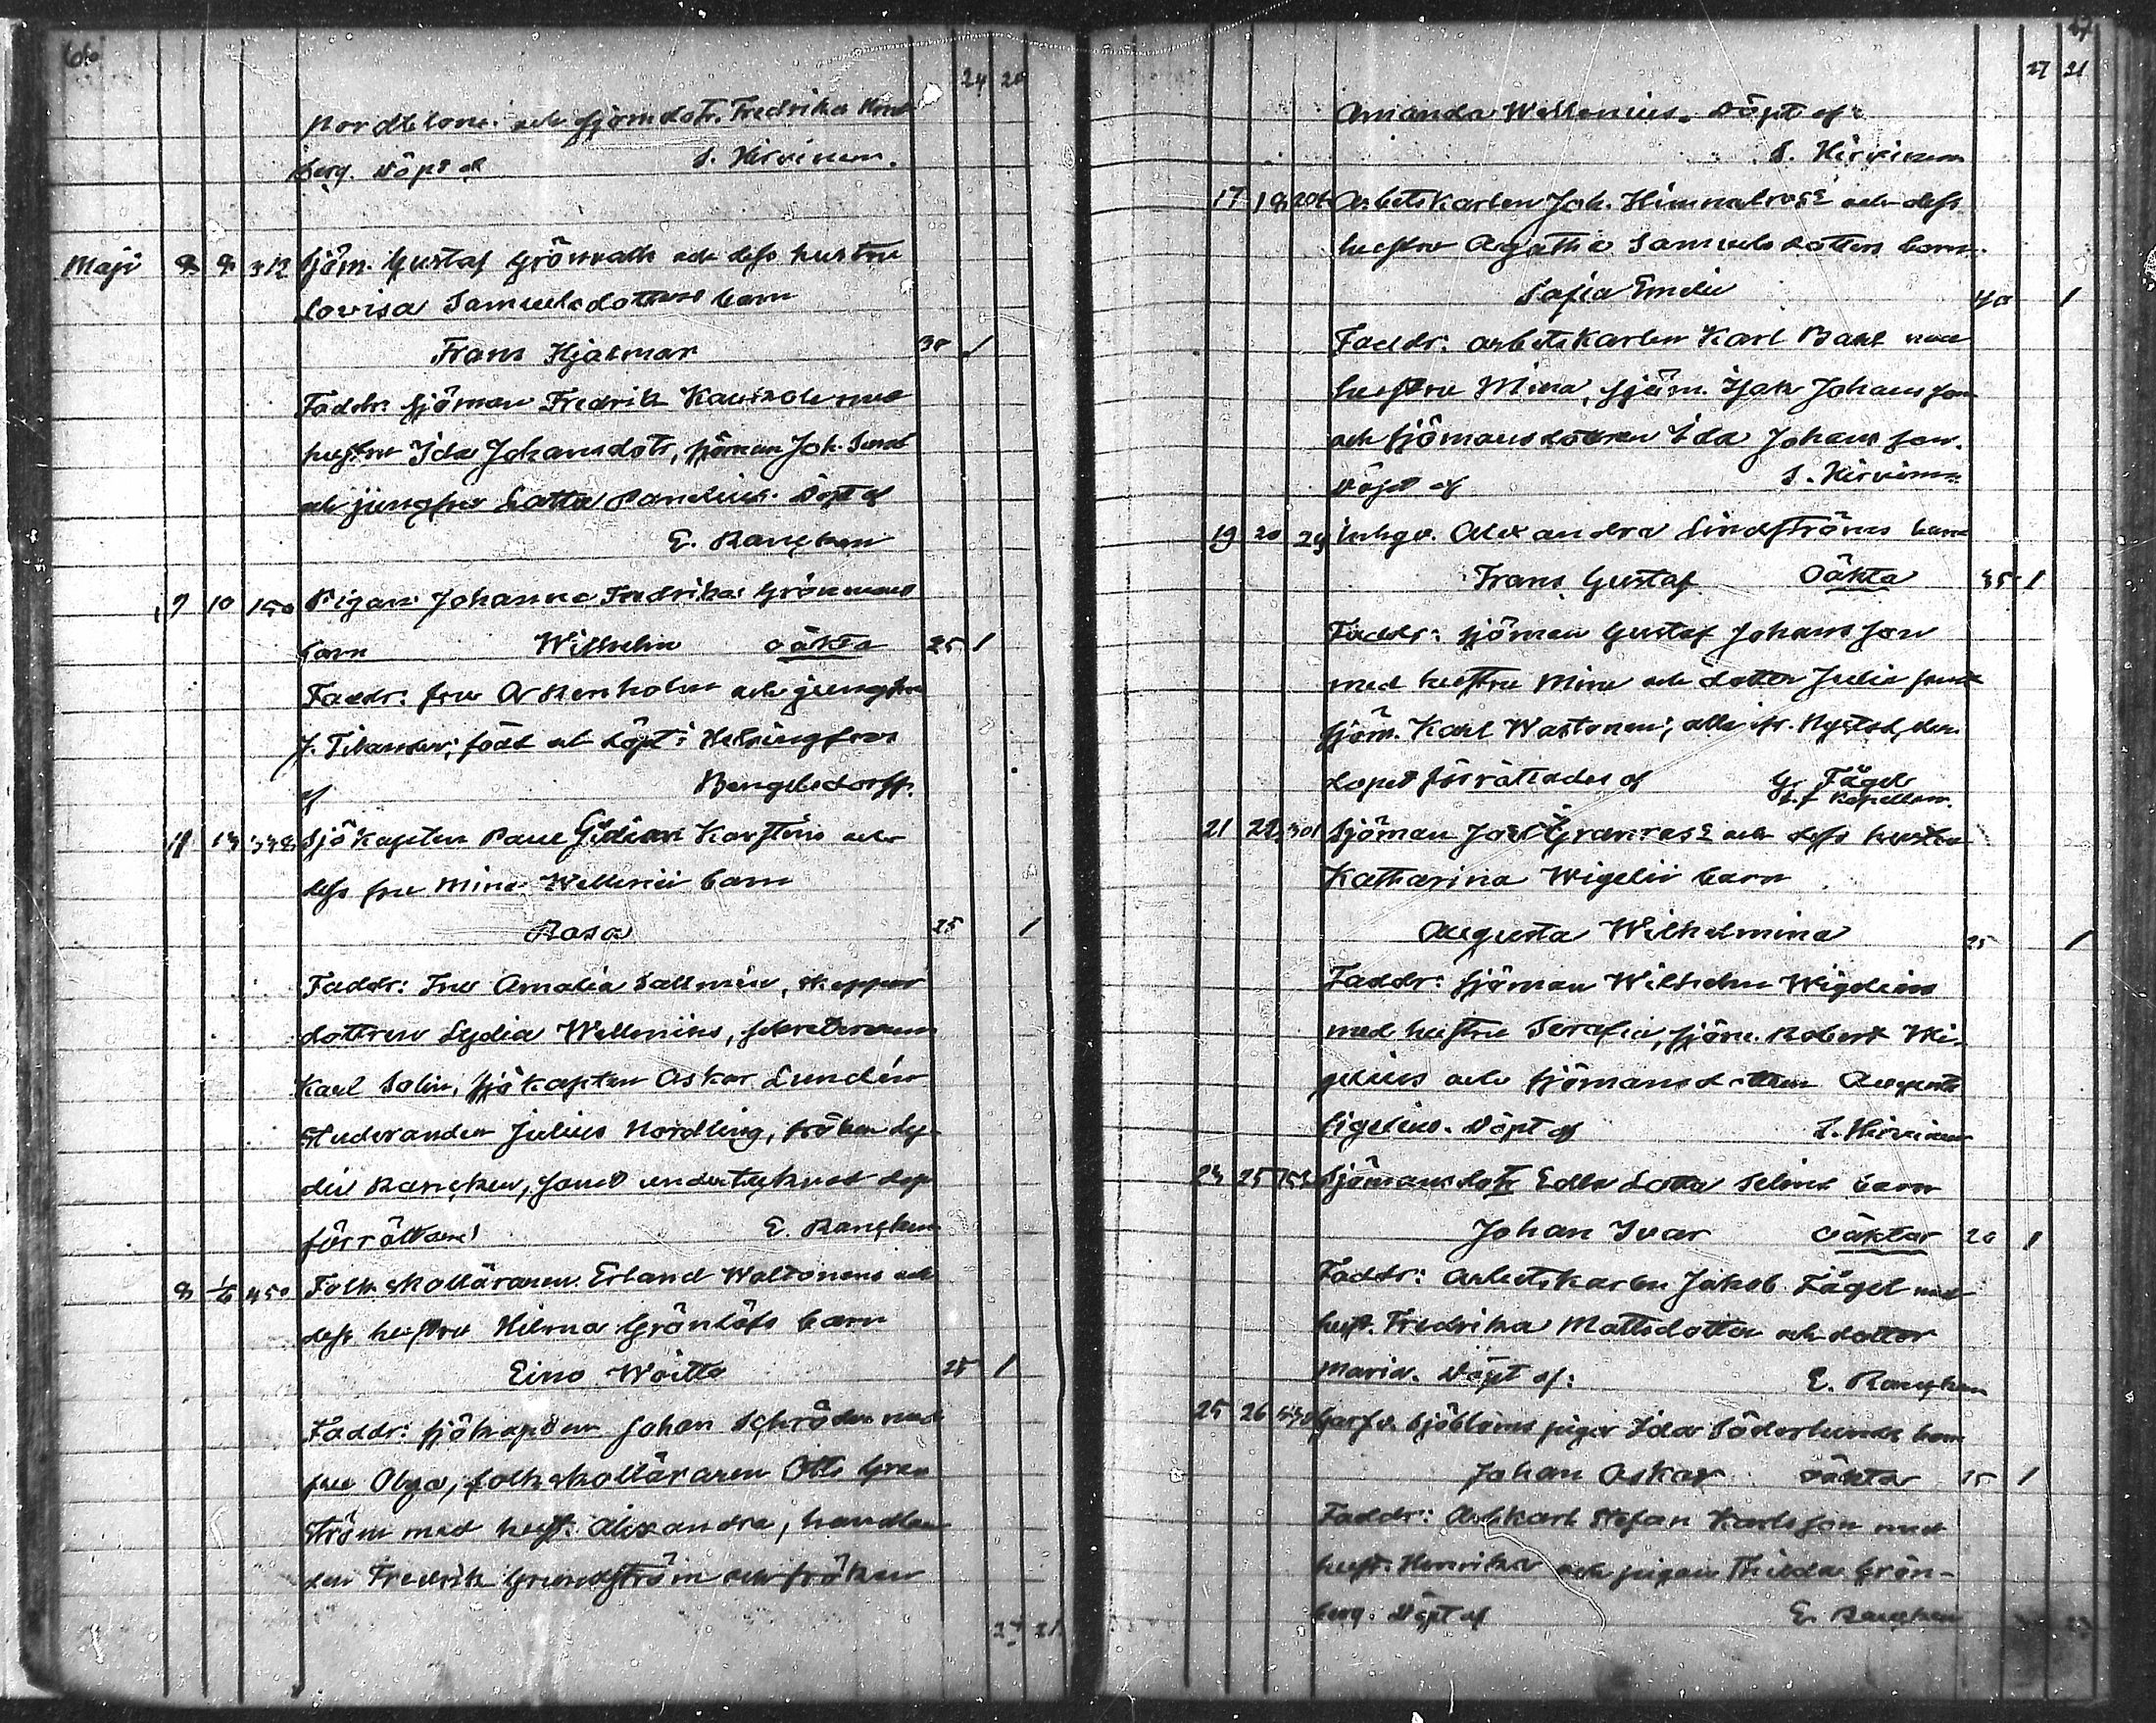 66
24 20
Nordblom. och sjömdotr. Fredrika Nord
berg. Döpt af S. Hirvinen.
Maji 8 9 312 Sjöm. Gustaf Grönvalls och dess hustru
Lovisa Samuelsdotters barn
Frans Hjalmar 30 1
Faddr: sjöman Fredrik med
hustru Ida Johansdotr, sjöman Joh. Sund
och jungfru Lotta Pandelius. Döpt af
E. Rancken
9 10 150 Pigan Johanna Fredrika Grönmans
barn Wilhelm oäkta 25 1
Faddr: fru Arrenholm och jungfru
J. Tilander; född och döpt i Helsingfors
af Bengelsdorff.
11 13 338 Sjökapten Paul Gideon Karsténs och
dess fru Mina Wellenii barn
Rosa 25 1
Faddr: Fru Amalia Sallmén, skeppar
dottren Lydia Wellenius, sekreteraren
Karl Solin, sjökapten Oskar Lundén
studeranden Julius Nordling, fröken Ly-
dia Rancken, samt undertecknad dop
förrättare E. Rancken
8 1/6 450 Folkskolläraren Erland Waltonens och
dess hustru Hilma Grönlöfs barn
Eino Woitto 28 1
Faddr: sjökapten Johan Schröder med
fru Olga, folkskolläraren Otto Gran
ström med hust. Alexandra, handlan
den Fredrik Grundström och fröken
27 21
67
27 21
Amanda Wellenius. Döpt af:
S. Hirvinen
17 18 206 Arbetskarlen Joh. Himnalros och dess
hustru Agatha Samuelsdotters barn
Sofia Emilia 40 1
Faddr: arbetskarlen Karl med
hustru Mina, sjöm. Isak Johansson
och sjömansdottren Ida Johansson.
Döpt af S. Hirvinen
19 20 29 Inhys. Alexandra Lindströms barn
Frans Gustaf Oäkta 35 1
Faddr: sjöman Gustaf Johansson
med hustru Mina och dotter Julia samt
sjöm. Karl Wastonen; alla fr. Nystad, den
dopet förrättades af G. Fågel
t.f. Kapellan.
21 22 301 Sjöman Joel Granros och dess hustru
Katharina Wigelii barn
Augusta Wilhelmina 25 1
Faddr: sjöman Wilhelm Wigelius
med hustru Serafia, sjöm. Robert Wi-
gelius och sjömansdottren Augusta
Sigelius. Döpt af S. Hirvinen
23 25 153 Sjömansdotr Edla Lotta Selins barn
Johan Ivar oäktar 20 1
Faddr: Arbetskarlen Jakob Fågel med
hust. Fredrika Mattsdotter och dotter
Maria. Döpt af: E. Rancken
25 26 530 Garfv. Sjöbloms piga Ida Söderlunds barn
Johan Oskar oäktar 15 1
Faddr: Arbkarl Stefan Karlsson med
hust. Henrika och pigan Thilda Grön-
berg. Döpt af E. Rancken